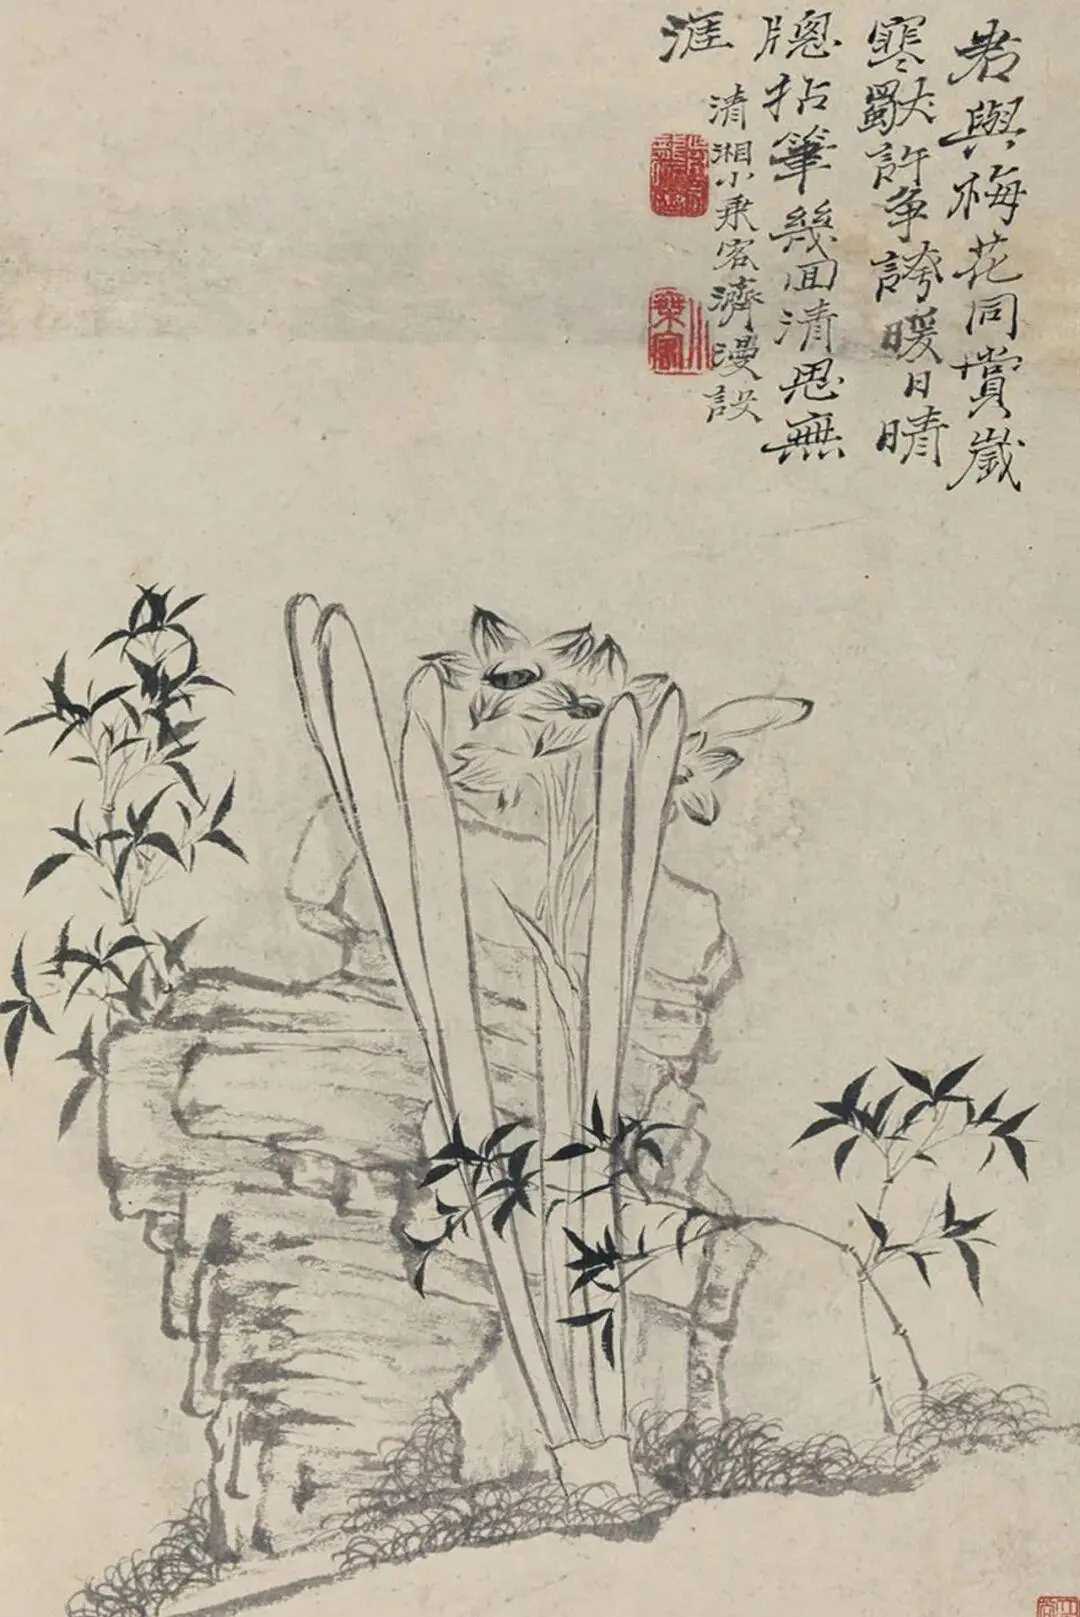 君與梅花同賞歲
寒獨許争誇暖日晴
牕拈筆幾回清思無
涯
清湘小乘客濟漫設
小乘客